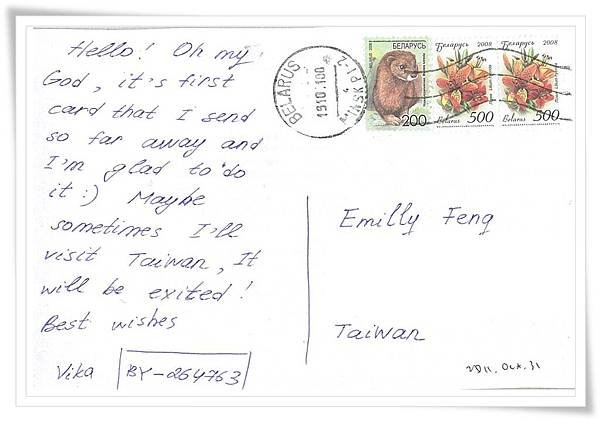 Hello! Oh my
God, it's first
card that I send
so far away and
I'm glad to do
it :) Maybe
sometimes I'll
visit Taiwan, It
will be exited!
Best wishes
Vika BY-264763
BELARUS
1910.100
MINSK PI-2
БЕЛАРУСЬ
200
Беларусь 2008
Belarus 500
Беларусь 2008
Belarus 500
Emilly Feng
Taiwan
2011. Oct. 31